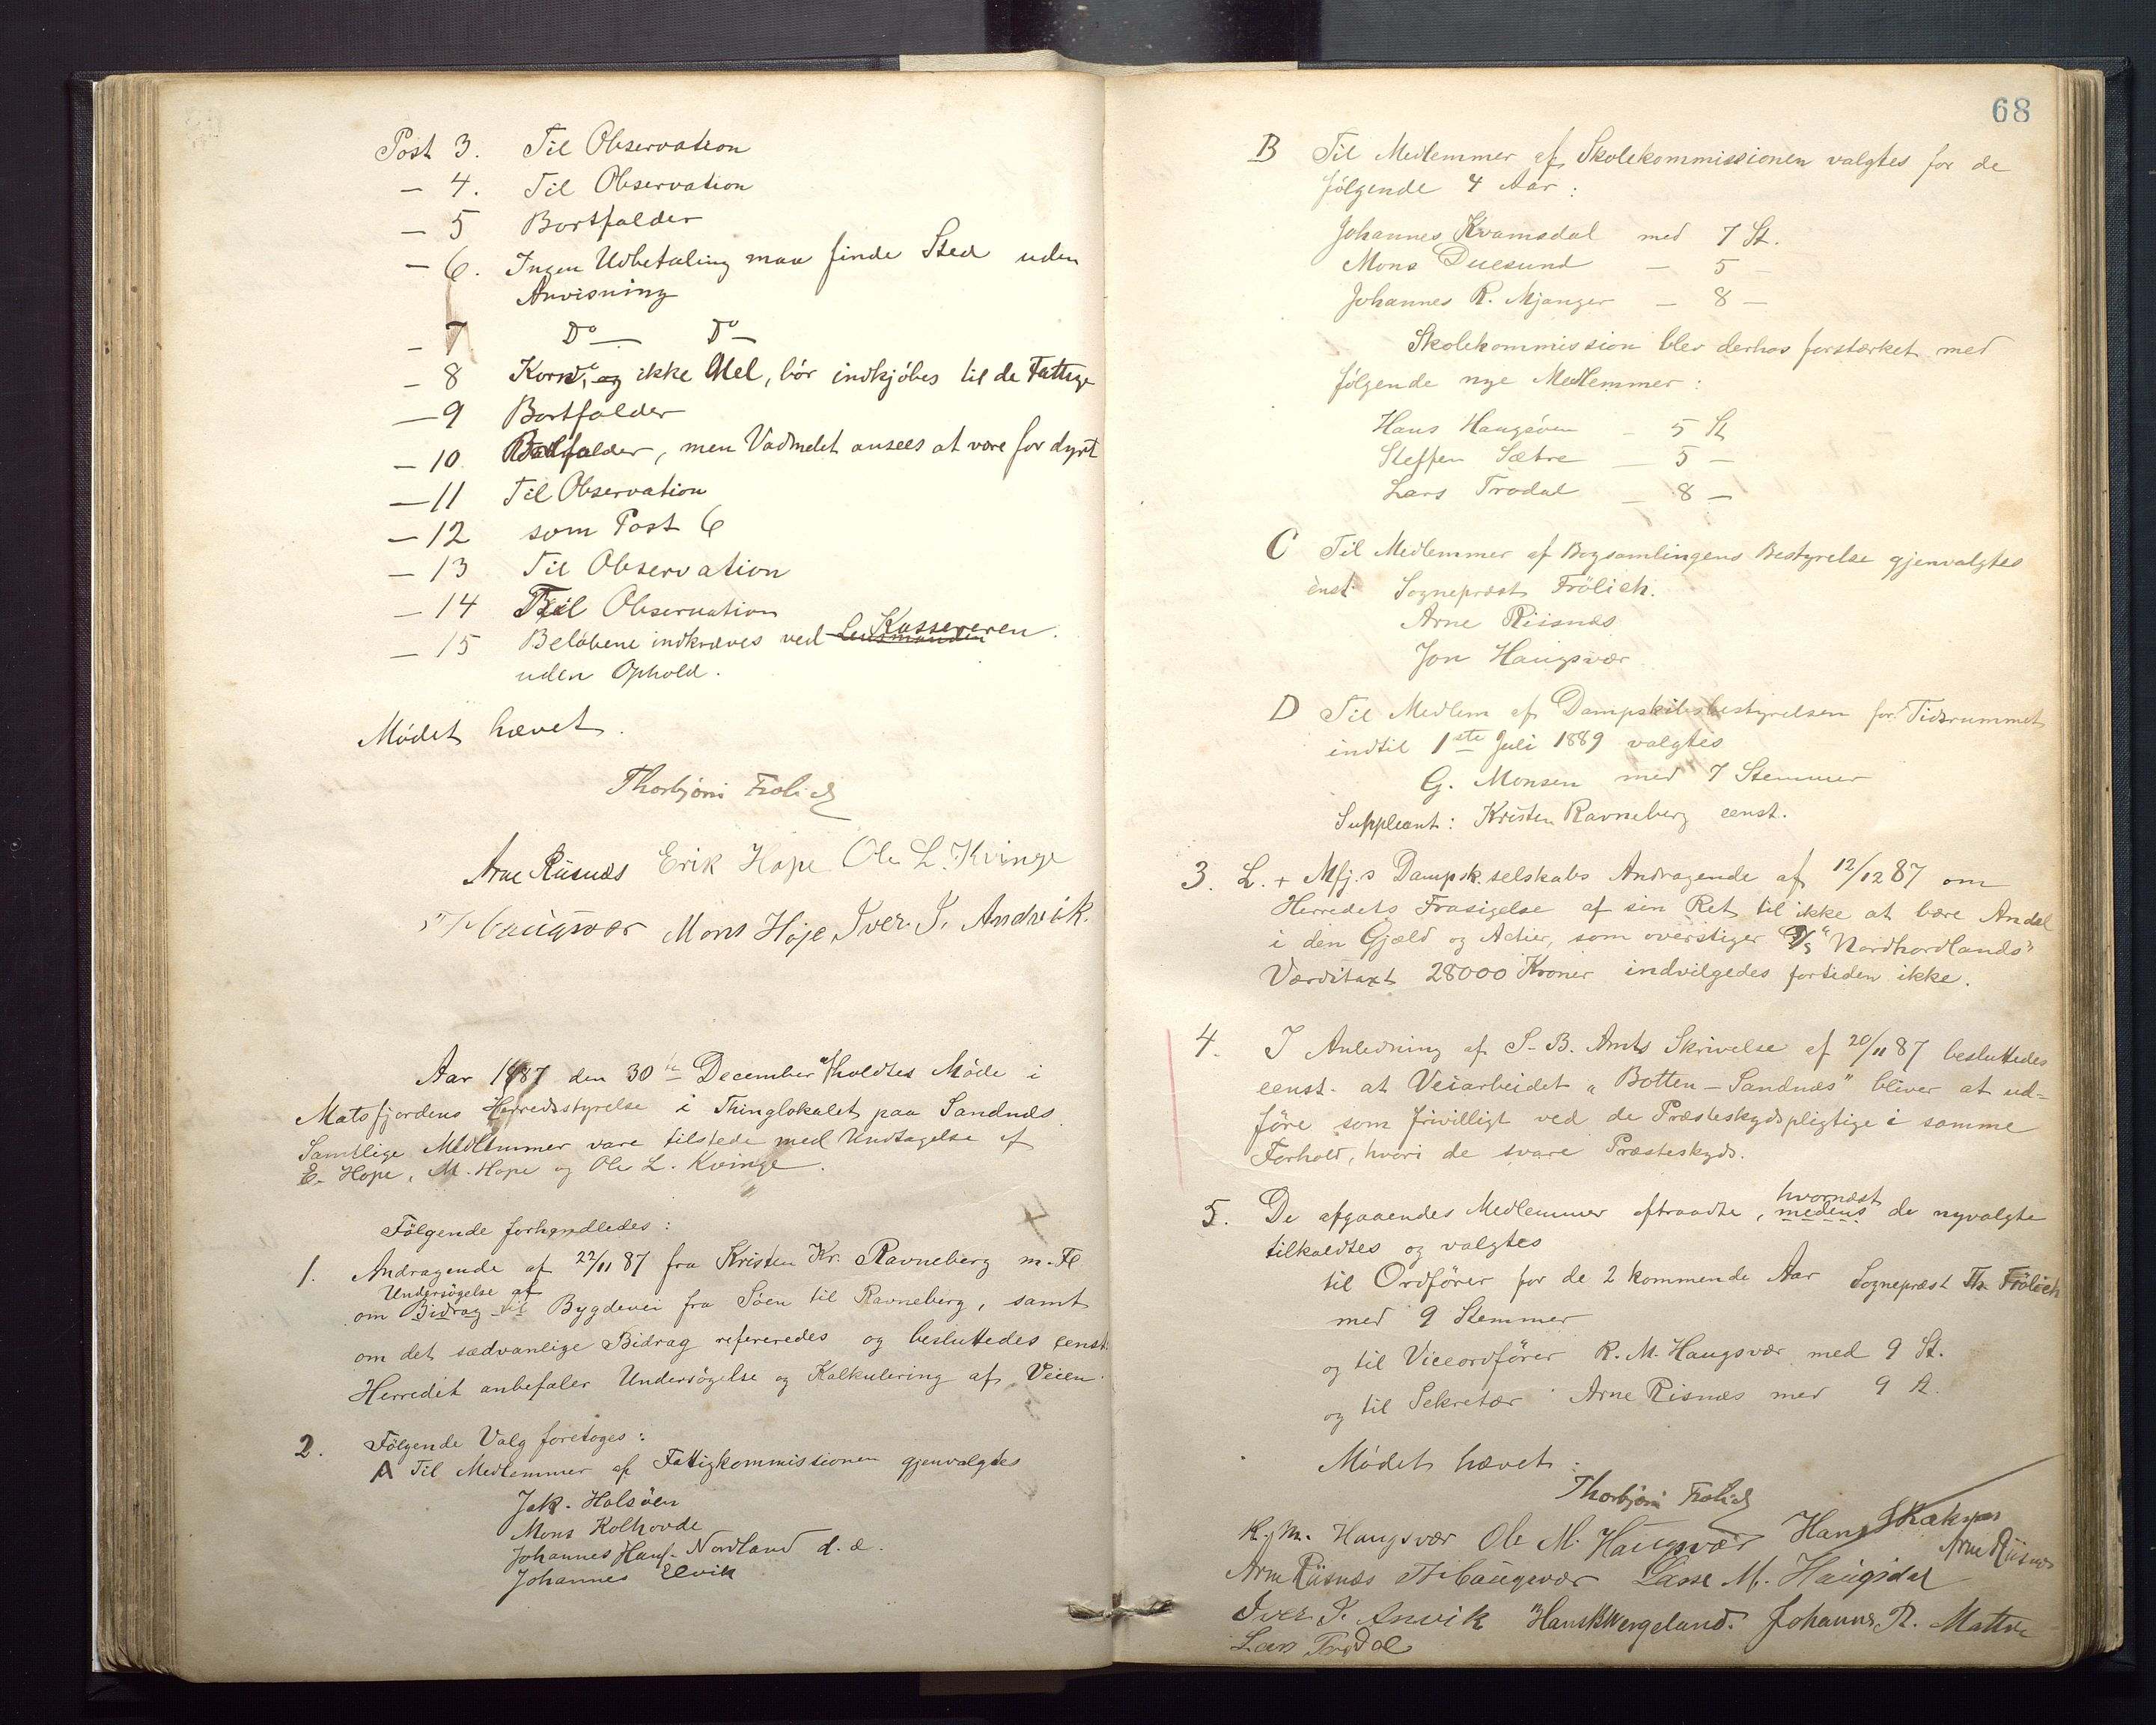 Post 3. Til Observation
— 4. Til Observation
— 5 Bortfalder
— 6. Ingen Udbetaling maa finde Sted uden
Anvisning
— 7 Do — Do —
— 8 Korn, og ikke Mel, bör indkjöbes til de Fattige
— 9 Bortfalder
— 10 Bortfalder, men Vadmelet ansees at være for dyrt
— 11 Til Observation
— 12 som Post 6
— 13 Til Observation
— 14 Til Observation
— 15 Belöbene indkræves ved Lensmanden Kassereren.
uden Ophold.
Mödet hævet.
Thorbjörn Frölich
Arne Risnæs Erik Hope Ole L. Kvinge
Haugsvær Mons Hope Iver. J. Andvik.
Aar 1887 den 30te December afholdtes Möde i
Matsfjordens Herredsstyrelse i Thinglokalet paa Sandnæs.
Samtlige Medlemmer vare tilstede med Undtagelse af
E. Hope, M. Hope og Ole L. Kvinge.
Fölgende forhandledes:
1. Andragende af 22/11 87 fra Kristen Kr. Ravneberg m. Fl
Undersögelse af
om Bidrag til Bygdevei fra Söen til Ravneberg, samt
om det sædvanlige Bidrag refereredes og besluttedes eenst:
Herredet anbefaler Undersögelse og Kalkulering af Veien.
2. Fölgende Valg foretoges:
A Til Medlemmer af Fattigkommissionen gjenvalgtes
Jak. Holsöen
Mons Kolhovde
Johannes Hans. Nordland d. æ.
Johannes Elvik
68
B Til Medlemmer af Skolekommissionen valgtes for de
fölgende 4 Aar:
Johannes Kvamsdal med 7 St.
Mons Duesund — 5 —
Johannes R. Mjanger — 8 —
Skolekommission blev derhos forstærket med
fölgende nye Medlemmer:
Hans Haugsöen — 5 St
Steffen Sætre — 5 —
Lars Trodal — 8 —
C Til Medlemmer af Bogsamlingens Bestyrelse gjenvalgtes
enst. Sognepræst Frölich.
Arne Riisnæs
Jon Haugsvær
D Til Medlem af Dampskibsbestyrelsen for Tidsrummet
indtil 1ste Juli 1889 valgtes
G. Monsen med 7 Stemmer
Suppleant: Kristen Ravneberg eenst.
3. L. + Mfj.s Dampsk.selskabs Andragende af 12/12 87 om
Herredets Frasigelse af sin Ret til ikke at bære Andel
i den Gjæld og Actier, som overstiger D/S "Nordhordlands"
Værditaxt 28000 Kroner indvilgedes fortiden ikke.
4. I Anledning af S. B. Amts Skrivelse af 20/11 87 besluttedes
eenst. at Veiarbeidet "Botten — Sandnæs" bliver at ud-
före som frivilligt ved de Præsteskydspligtige i samme
Forhold, hvori de svare Præsteskyds.
hvornæst
5. De afgaaendes Medlemmer aftraadte, medens de nyvalgte
tilkaldtes og valgtes
til Ordförer for de 2 kommende Aar Sognepræst Th Frölich
med 9 Stemmer
og til Viceordförer R. M. Haugsvær med 9 St.
og til Sekretær Arne Risnæs med 9 St.
Mödet hævet:
Thorbjörn Frölich
R. M. Haugsvær Ole M. Haugsvær Hans
Arne Riisnæs
Arne Riisnæs Haugsvær Lasse M. Haugsdal
Iver J. Anvik Hans Wergeland. Johannes R. Mattre
Lars Trodal